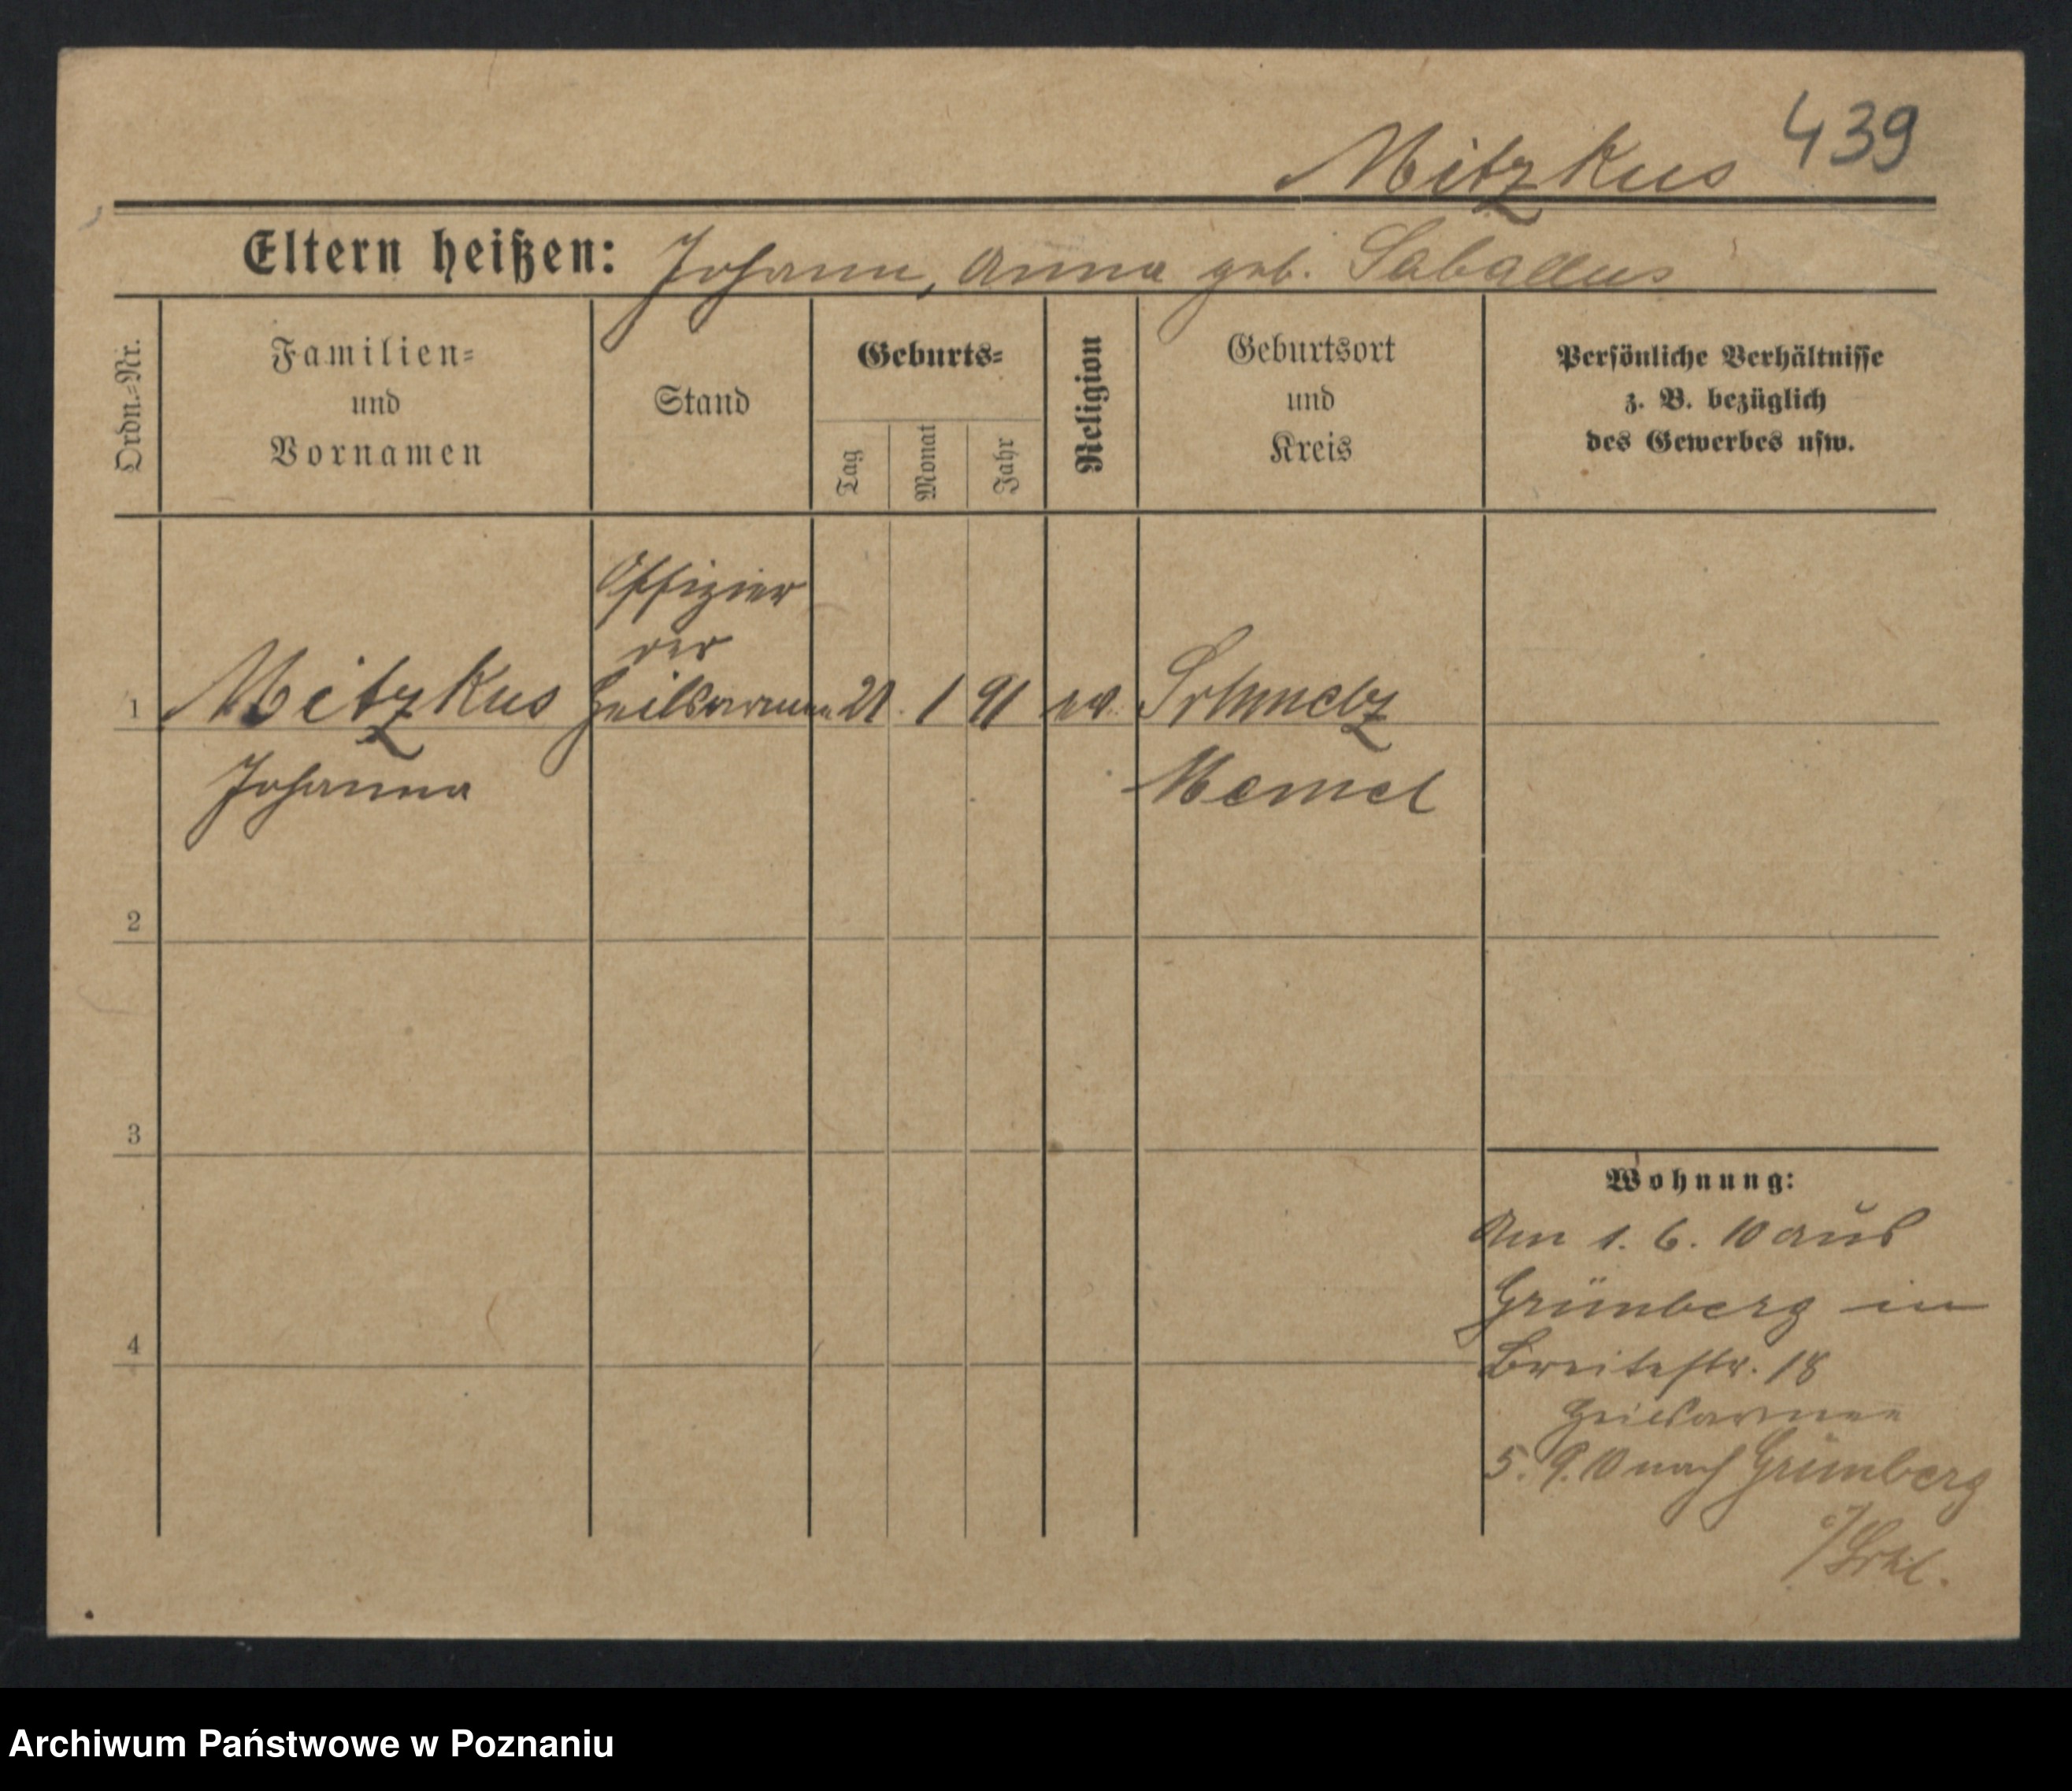 439
Mitzkus
Eltern heißen: Johann, Anna geb. Saballus
Ordn.=Nr.
Familien=
und
Vornamen
Stand
Geburts=
Tag
Monat
Jahr
Religion
Geburtsort
und
Kreis
Persönliche Verhältnisse
z. B. bezüglich
des Gewerbes usw.
Offizier
der
1 Mitzkus Heilsarmee 21. 1 91 ev. Schmelz
Johanna Memel
2
3
4
Wohnung:
Am 1. 6. 10 aus
Grünberg in
Breitestr. 18
Heilsarmee
5. 9. 10 nach Grünberg
Archiwum Państwowe w Poznaniu